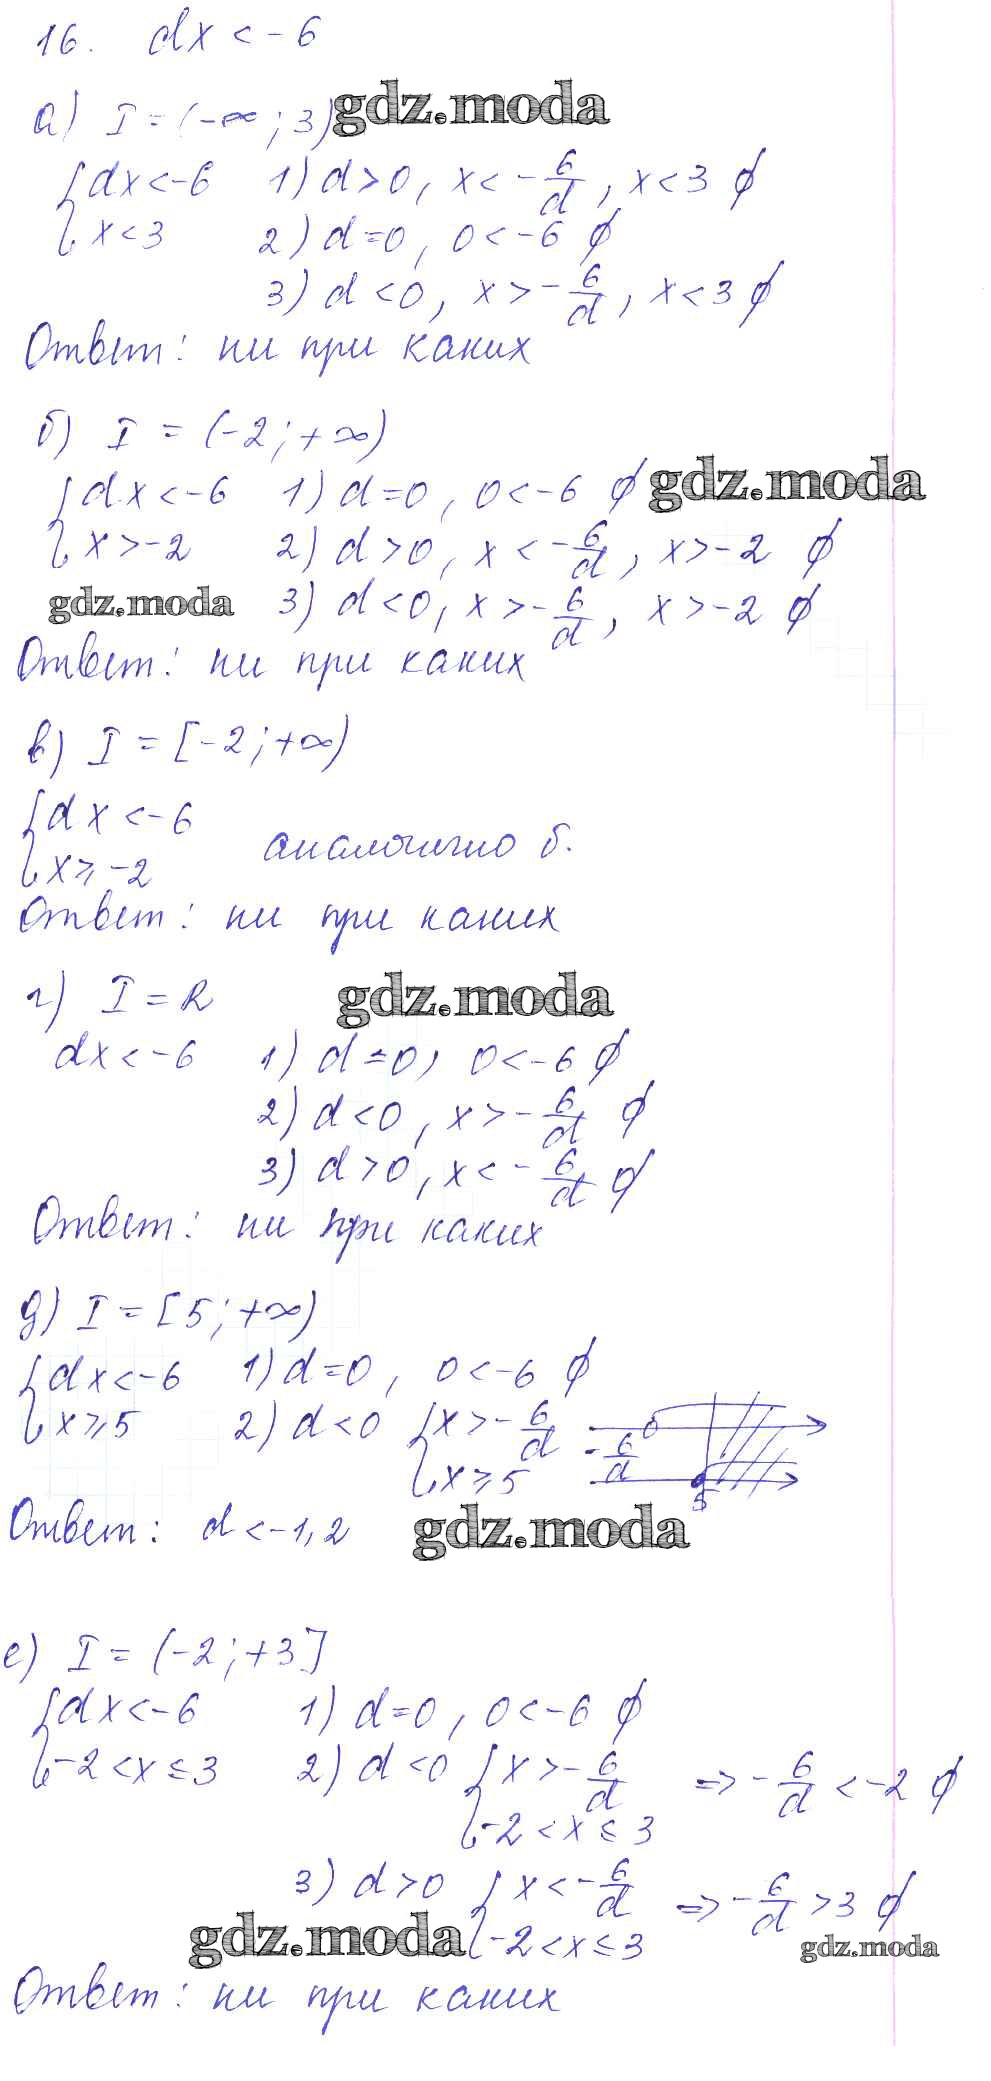 16. dx < -6
а) I = (-∞; 3) gdz.moda
{dx < -6 1) d > 0, x < -6/d, x < 3 ∅
x < 3 2) d = 0, 0 < -6 ∅
3) d < 0, x > -6/d, x < 3 ∅
Ответ: ни при каких
б) I = (-2; +∞)
{dx < -6 1) d = 0, 0 < -6 ∅ gdz.moda
x > -2 2) d > 0, x < -6/d, x > -2 ∅
gdz.moda 3) d < 0, x > -6/d, x > -2 ∅
Ответ: ни при каких
в) I = [-2; +∞)
{dx < -6
x ≥ -2 аналогично б.
Ответ: ни при каких
г) I = R gdz.moda
dx < -6 1) d = 0, 0 < -6 ∅
2) d < 0, x > -6/d ∅
3) d > 0, x < -6/d ∅
Ответ: ни при каких
д) I = [5; +∞)
{dx < -6 1) d = 0, 0 < -6 ∅
x ≥ 5 2) d < 0 {x > -6/d -6/d
x ≥ 5 5
Ответ: d < -1,2 gdz.moda
е) I = (-2; +3]
{dx < -6 1) d = 0, 0 < -6 ∅
-2 < x ≤ 3 2) d < 0 {x > -6/d => -6/d < -2 ∅
-2 < x ≤ 3
3) d > 0 {x < -6/d => -6/d > 3 ∅
gdz.moda -2 < x ≤ 3 gdz.moda
Ответ: ни при каких